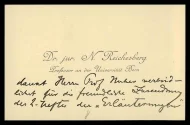 Dr. jur. N. Reichesberg
Professor an der Universität Bern
dankt Herrn Prof. verbind-
lichst für die freundliche Zusendung
des 2. Heftes der „Erläuterungen“